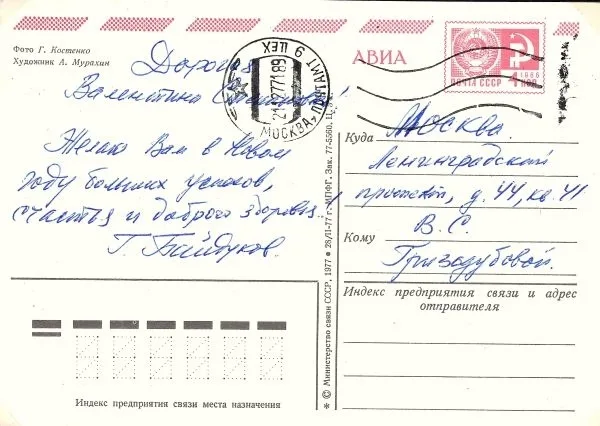 Фото Г. Костенко
Художник А. Мурахин
АВИА
1966
ПОЧТА СССР 4 КОП.
МОСКВА, ПОЧТАМТ 9 ЦЕХ
Дорогая
Валентина Степановна!
Желаю Вам в Новом
году больших успехов,
счастья и доброго здоровья!
Г. Байдуков.
Куда Москва.
Ленинградский
проспект, д. 44, кв. 41
Кому В. С.
Гризодубовой.
Индекс предприятия связи и адрес
отправителя
Индекс предприятия связи места назначения
* © Министерство связи СССР, 1977 * 28/II-77 г. МПФГ. Зак. 77-5560. Ц.